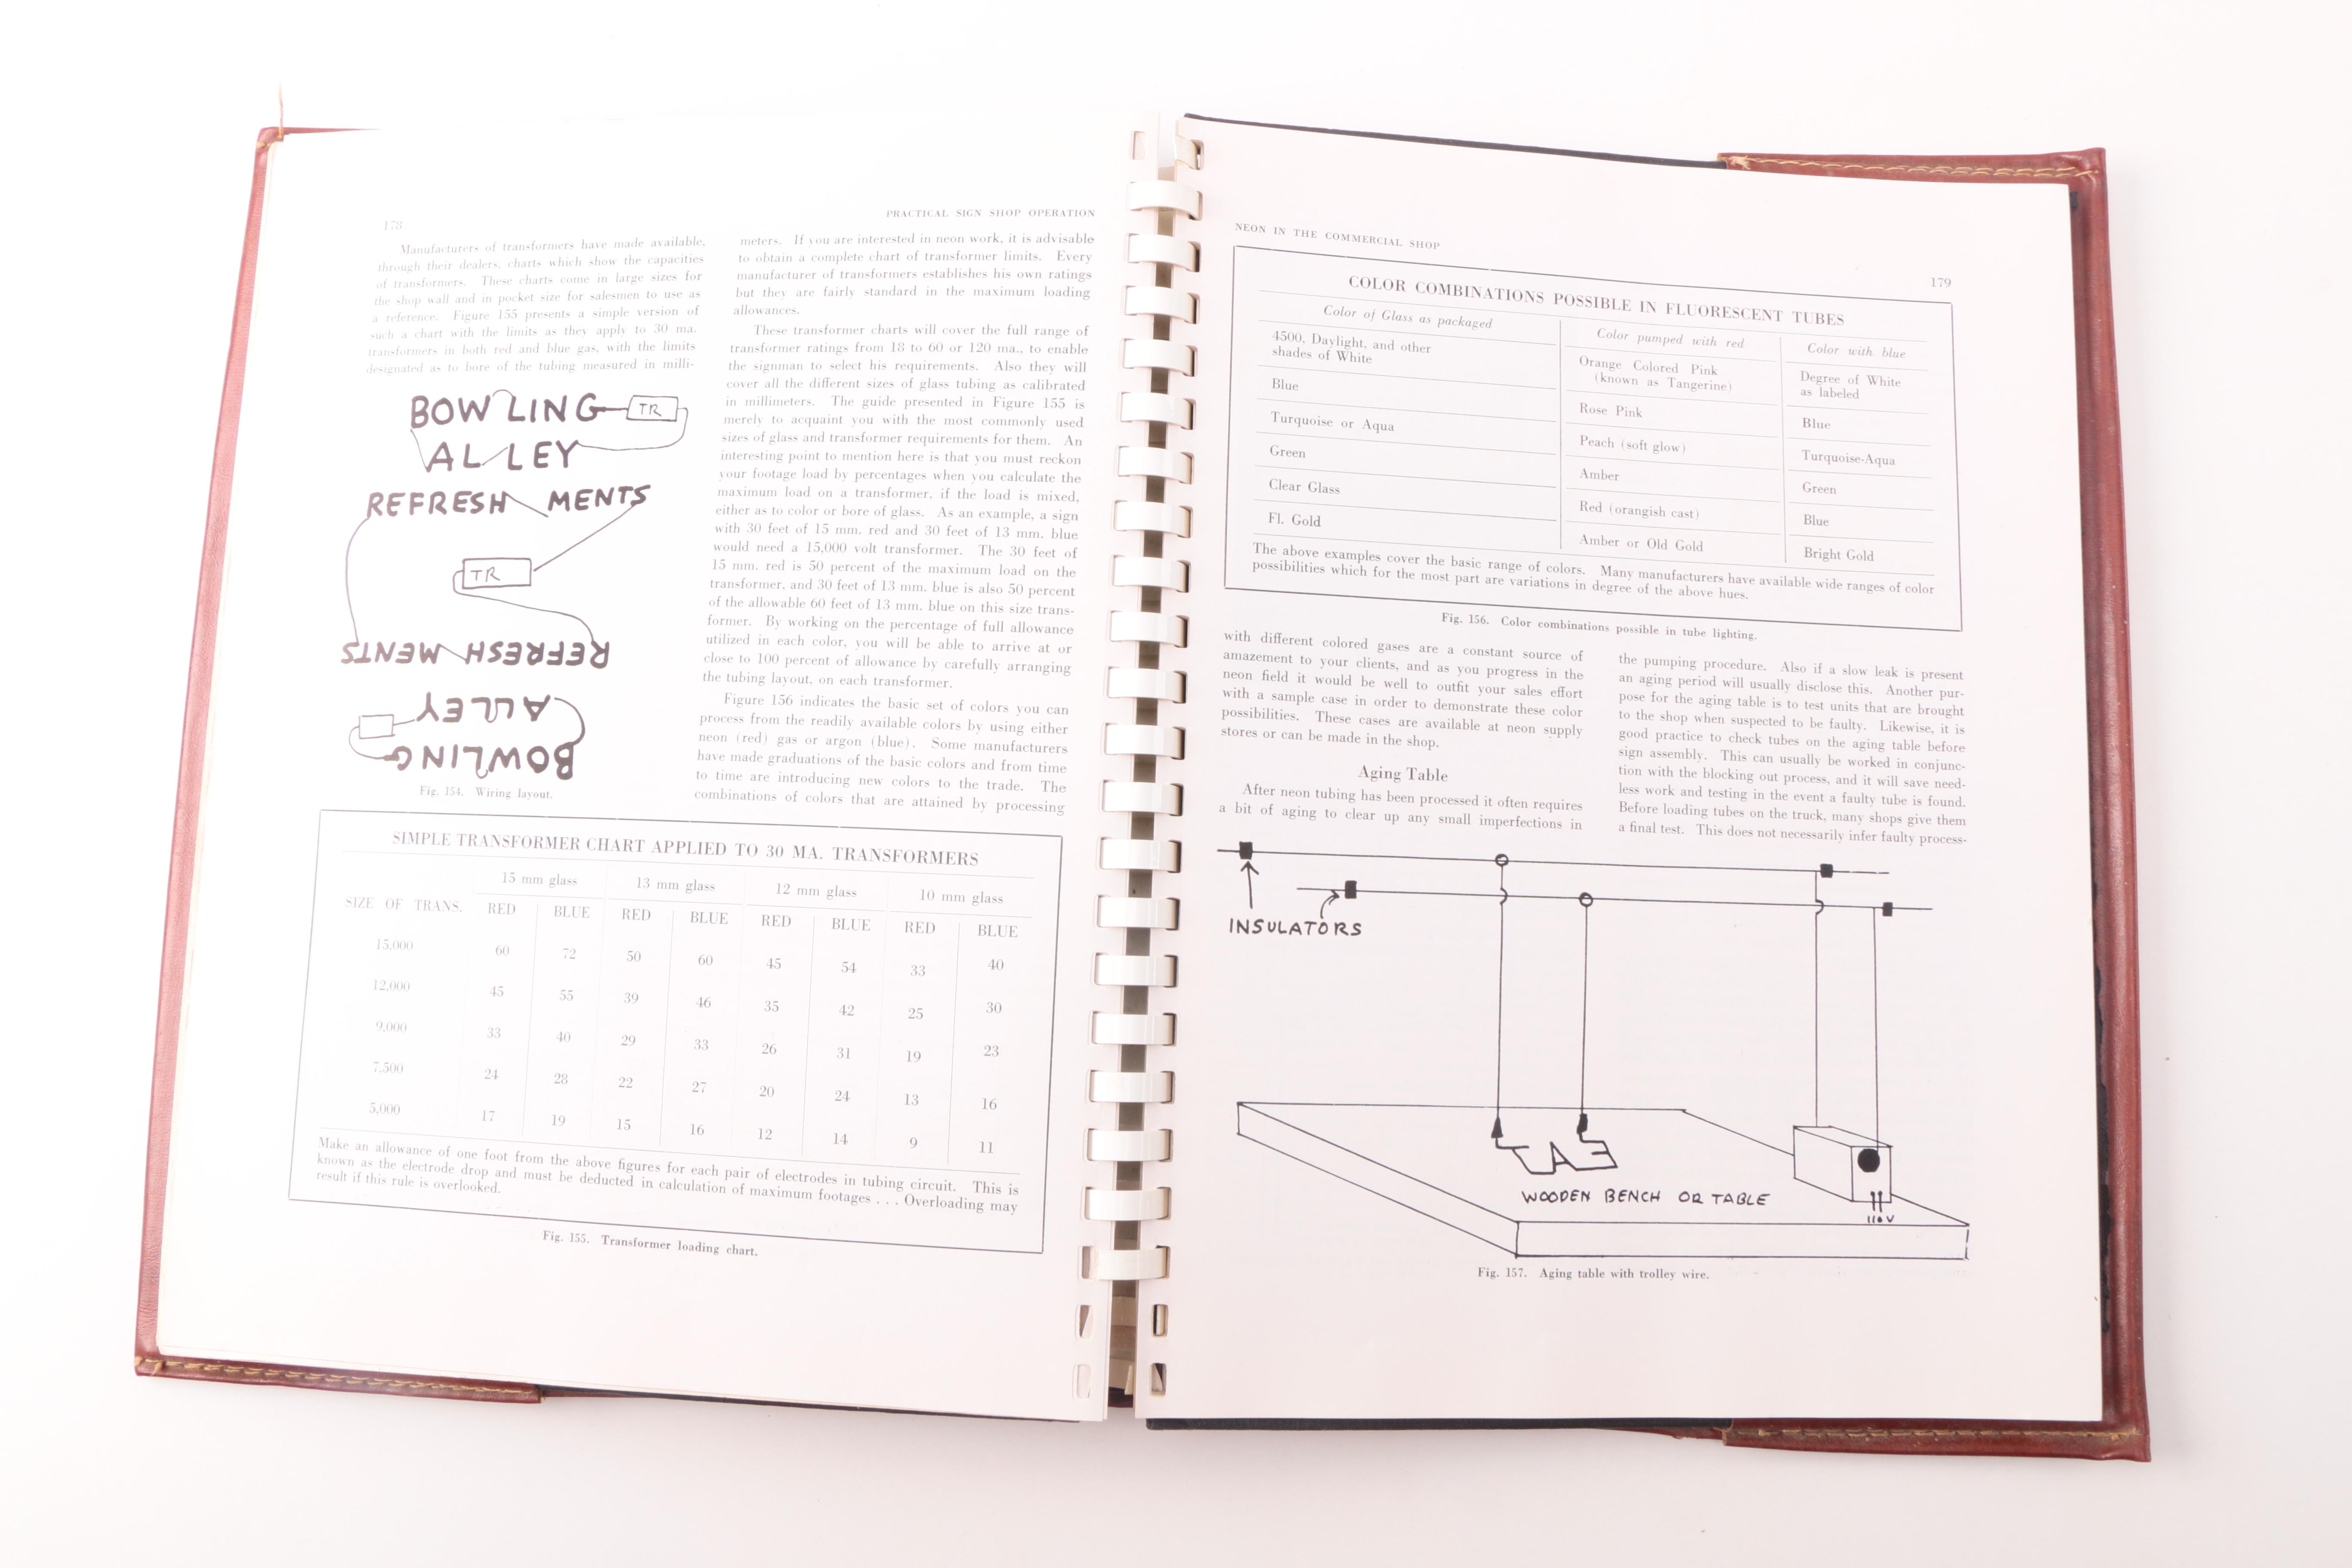 178
PRACTICAL SIGN SHOP OPERATION
Manufacturers of transformers have made available,
through their dealers, charts which show the capacities
of transformers. These charts come in large sizes for
the shop wall and in pocket size for salesmen to use as
a reference. Figure 155 presents a simple version of
such a chart with the limits as they apply to 30 ma.
transformers in both red and blue gas, with the limits
designated as to bore of the tubing measured in milli-
BOWLING TR
ALLEY
REFRESH MENTS
TR
REFRESH MENTS
ALLEY
BOWLING
Fig. 154. Wiring layout.
meters. If you are interested in neon work, it is advisable
to obtain a complete chart of transformer limits. Every
manufacturer of transformers establishes his own ratings
but they are fairly standard in the maximum loading
allowances.
These transformer charts will cover the full range of
transformer ratings from 18 to 60 or 120 ma., to enable
the signman to select his requirements. Also they will
cover all the different sizes of glass tubing as calibrated
in millimeters. The guide presented in Figure 155 is
merely to acquaint you with the most commonly used
sizes of glass and transformer requirements for them. An
interesting point to mention here is that you must reckon
your footage load by percentages when you calculate the
maximum load on a transformer, if the load is mixed,
either as to color or bore of glass. As an example, a sign
with 30 feet of 15 mm. red and 30 feet of 13 mm. blue
would need a 15,000 volt transformer. The 30 feet of
15 mm. red is 50 percent of the maximum load on the
transformer, and 30 feet of 13 mm. blue is also 50 percent
of the allowable 60 feet of 13 mm. blue on this size trans-
former. By working on the percentage of full allowance
utilized in each color, you will be able to arrive at or
close to 100 percent of allowance by carefully arranging
the tubing layout, on each transformer.
Figure 156 indicates the basic set of colors you can
process from the readily available colors by using either
neon (red) gas or argon (blue). Some manufacturers
have made graduations of the basic colors and from time
to time are introducing new colors to the trade. The
combinations of colors that are attained by processing
SIMPLE TRANSFORMER CHART APPLIED TO 30 MA. TRANSFORMERS
15 mm glass 13 mm glass 12 mm glass 10 mm glass
SIZE OF TRANS. RED BLUE RED BLUE RED BLUE RED BLUE
15,000 60 72 50 60 45 54 33 40
12,000 45 55 39 46 35 42 25 30
9,000 33 40 29 33 26 31 19 23
7,500 24 28 22 27 20 24 13 16
5,000 17 19 15 16 12 14 9 11
Make an allowance of one foot from the above figures for each pair of electrodes in tubing circuit. This is
known as the electrode drop and must be deducted in calculation of maximum footages . . . Overloading may
result if this rule is overlooked.
Fig. 155. Transformer loading chart.
NEON IN THE COMMERCIAL SHOP
179
COLOR COMBINATIONS POSSIBLE IN FLUORESCENT TUBES
Color of Glass as packaged Color pumped with red Color with blue
4500, Daylight, and other Orange Colored Pink Degree of White
shades of White (known as Tangerine) as labeled
Blue Rose Pink Blue
Turquoise or Aqua Peach (soft glow) Turquoise-Aqua
Green Amber Green
Clear Glass Red (orangish cast) Blue
Fl. Gold Amber or Old Gold Bright Gold
The above examples cover the basic range of colors. Many manufacturers have available wide ranges of color
possibilities which for the most part are variations in degree of the above hues.
Fig. 156. Color combinations possible in tube lighting.
with different colored gases are a constant source of
amazement to your clients, and as you progress in the
neon field it would be well to outfit your sales effort
with a sample case in order to demonstrate these color
possibilities. These cases are available at neon supply
stores or can be made in the shop.
Aging Table
After neon tubing has been processed it often requires
a bit of aging to clear up any small imperfections in
the pumping procedure. Also if a slow leak is present
an aging period will usually disclose this. Another pur-
pose for the aging table is to test units that are brought
to the shop when suspected to be faulty. Likewise, it is
good practice to check tubes on the aging table before
sign assembly. This can usually be worked in conjunc-
tion with the blocking out process, and it will save need-
less work and testing in the event a faulty tube is found.
Before loading tubes on the truck, many shops give them
a final test. This does not necessarily infer faulty process-
INSULATORS
WOODEN BENCH OR TABLE
110 V
Fig. 157. Aging table with trolley wire.